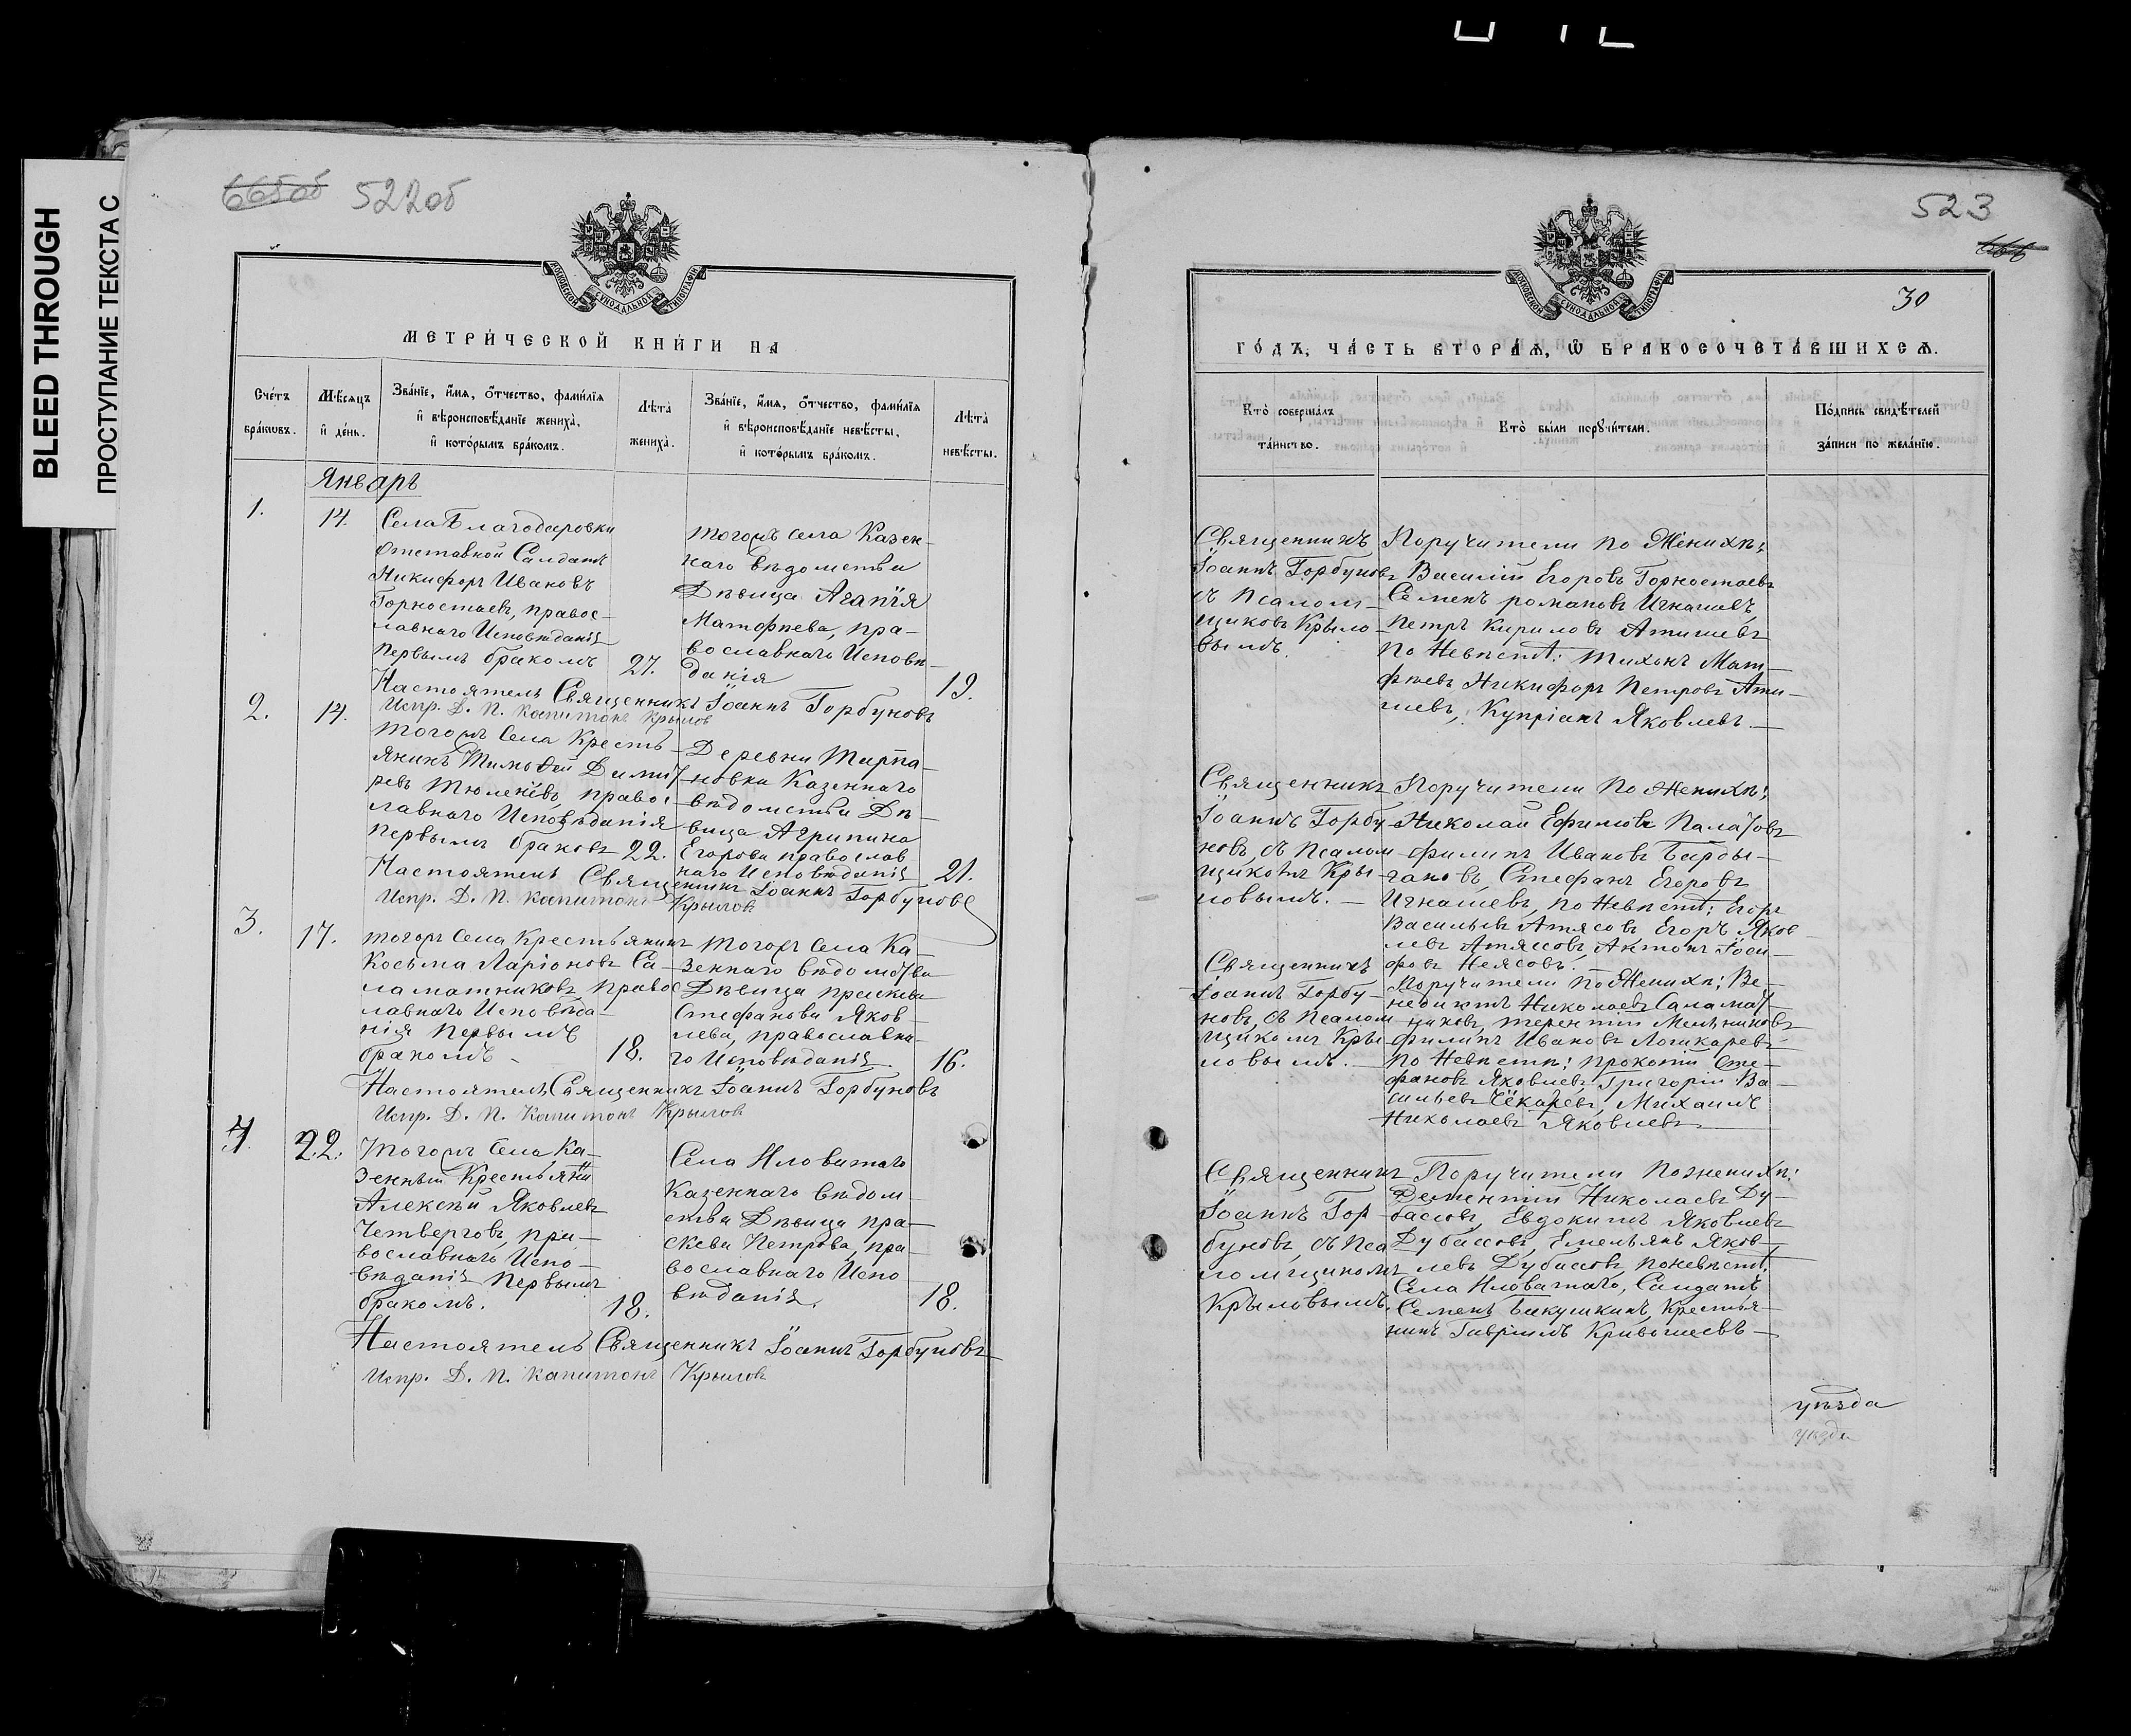 BLEED THROUGH
ПРОСТУПАНИЕ ТЕКСТА С
522об
МОСКОВСКОЙ СѴНОДАЛЬНОЙ ТИПОГРАФІИ
МЕТРИ́ЧЕСКОЙ КНИ́ГИ НА
Сче́тъ бра́ковъ.
Мѣ́сяцъ и де́нь.
Зва́нїе, и҆́мя, о҆́тчество, фами́лїя и҆ вѣроисповѣ́данїе жениха̀, и҆ кото́рымъ бра́комъ.
Лѣ́та жениха̀.
Зва́нїе, и҆́мя, о҆́тчество, фами́лїя и҆ вѣроисповѣ́данїе невѣ́сты, и҆ кото́рымъ бра́комъ.
Лѣ́та невѣ́сты.
Январь
1.
14.
Села Благодаровки
Отставной Салдатъ
Никифоръ Ивановъ
Горностаевъ, правос-
лавнаго Исповѣданія
первымъ бракомъ
27.
тогожъ села Казен-
наго вѣдомства
Дѣвица Агапія
Матфѣева, пра-
вославнаго Исповѣ-
данія
19.
Настоятель Священникъ Іоаннъ Горбуновъ
Испр. Д. П. Капитонъ Крыловъ
2.
14.
тогожъ Села Кресть-
янинъ Тимофей Димит-
ревъ Тюленевъ, правос-
лавнаго Исповѣданія
первымъ бракомъ
22.
Деревни
новки Казеннаго
вѣдомства Дѣ-
вица Агрипина
Егорова православ-
наго Исповѣданія
21.
Настоятель Священникъ Іоаннъ Горбуновъ
Испр. Д. П. Капитонъ Крыловъ
3.
17.
тогожъ Села Крестьянинъ
Косьма Ларіоновъ Са-
ламатниковъ, правос
лавнаго Исповѣда
нія первымъ
бракомъ
18.
тогожъ Села Ка-
зеннаго вѣдомства
Дѣвица праскева
Стефанова Яков-
лева, православна-
го Исповѣданія
16.
Настоятель Священникъ Іоаннъ Горбуновъ
Испр. Д. П. Капитонъ Крыловъ
4.
22.
Тогожъ Села Ка-
зенный Крестьянин
Алексѣй Яковлевъ
Четверговъ, пра-
вославнаго Испо-
вѣданія первымъ
бракомъ.
18.
Села Иловатаго
Казеннаго вѣдом-
ства Дѣвица пра-
скева Петрова, пра-
вославнаго Испо
вѣданія.
18.
Настоятель Священникъ Іоаннъ Горбуновъ
Испр. Д. П. Капитонъ Крыловъ
523
30
МОСКОВСКОЙ СѴНОДАЛЬНОЙ ТИПОГРАФІИ
ГО́ДЪ, ЧА́СТЬ ВТОРА́Я, Ѡ҆ БРАКОСОЧЕТА́ВШИХСЯ.
Кто̀ соверша́лъ та́инство.
Кто̀ бы́ли порꙋчи́тели.
По́дпись свидѣ́телей за́писи по жела́нїю.
Священникъ
Іоаннъ Горбуновъ
съ Псалом-
щиковъ Крыло-
вымъ.
Поручители по Женихѣ:
Василій Егоровъ Горностаевъ
Семенъ романовъ Игнашевъ
петръ Кириловъ Атишевъ
по Невѣстѣ: тихонъ Мат-
фѣевъ Никифоръ Петровъ Ати-
шевъ, Купріанъ Яковлевъ.
Священникъ
Іоаннъ Горбу-
новъ, съ Псалом-
щиковъ Кры-
ловымъ.
Поручители по Женихѣ:
Николай Ефимовъ
филипъ Ивановъ
Стефанъ Егоровъ
Игнашевъ, по Невѣстѣ: Егоръ
Васильевъ Атясовъ, Егоръ Яков-
левъ Атясовъ, Антонъ Іоси-
фовъ Неясовъ.
Священникъ
Іоаннъ Горбу-
новъ, съ Псалом
щикомъ Кры-
ловымъ.
Поручители по Женихѣ: Ве-
недиктъ Николаевъ Саламат-
никовъ, терентій Мельниковъ
филипъ Ивановъ Лошкаревъ
по Невѣстѣ: прокопій Сте-
фановъ Яковлевъ, Григорій Ва-
сильевъ Чекаревъ, Михаилъ
Николаевъ Яковлевъ
Священникъ
Іоаннъ Гор-
буновъ, съ Пса
ломщикомъ
Крыловымъ.
Поручители по женихѣ:
Дементій Николаевъ Ду-
басовъ, Евдокимъ Яковлевъ
Дубасовъ, Емельянъ Яков-
левъ Дубасовъ, по невѣстѣ
Села Иловатаго, Салдатъ
Семенъ Бакушкинъ, Крестья-
нинъ Гавріилъ Кривошеевъ
уѣзда
уѣзда